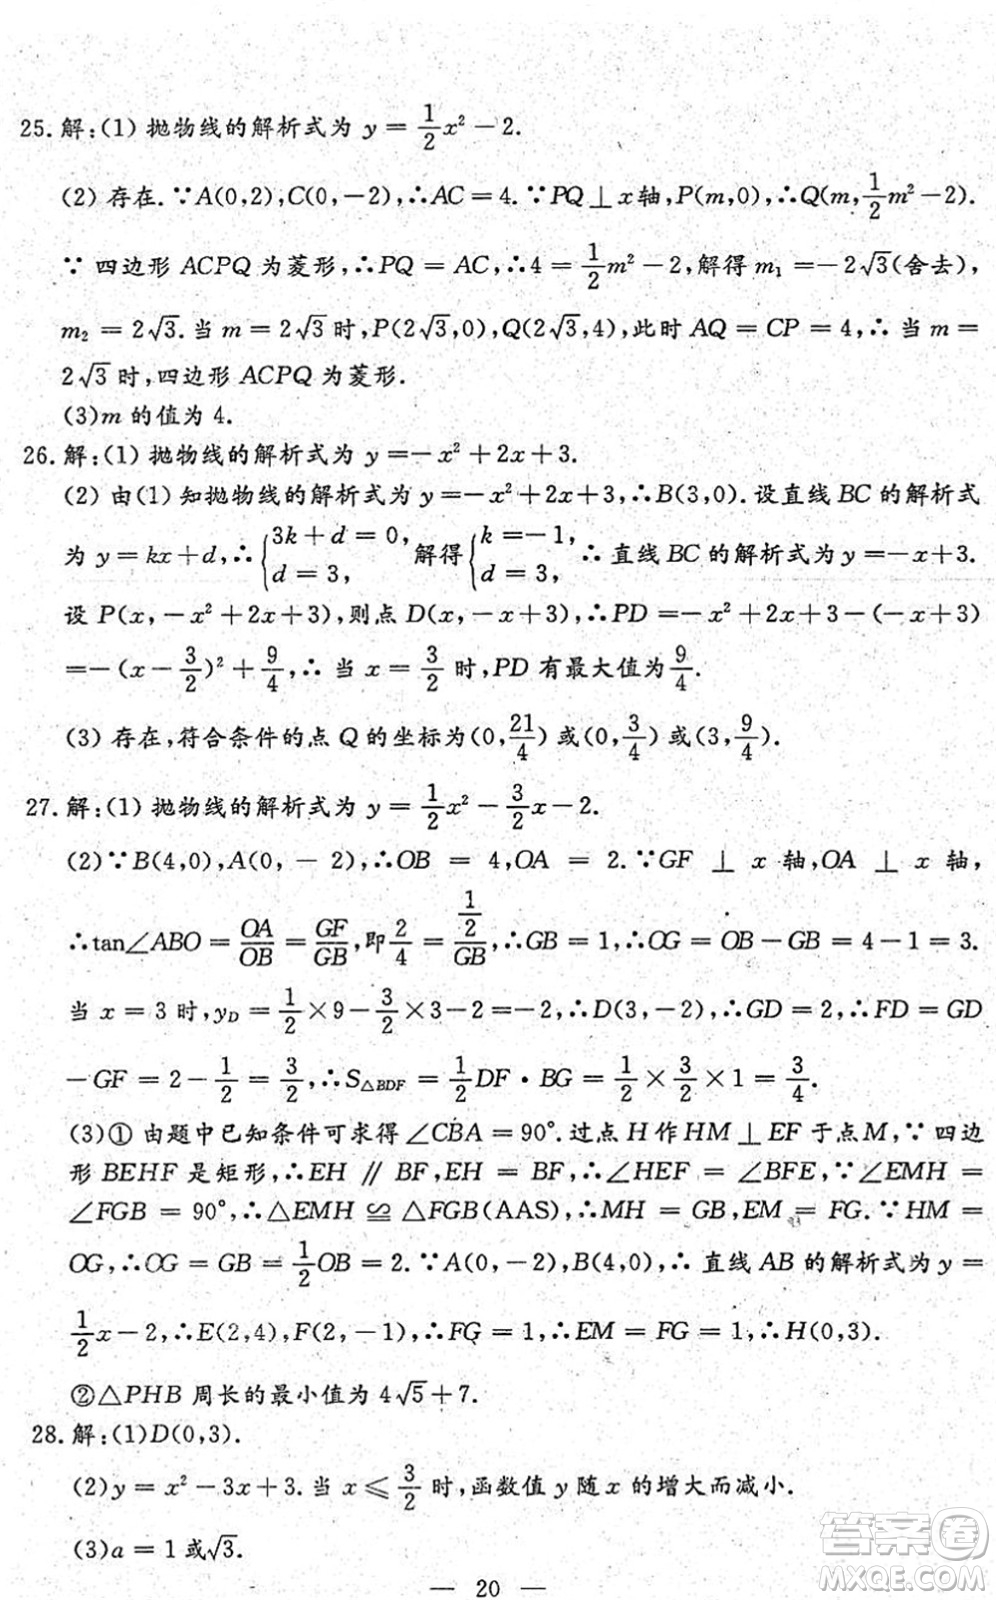 25. 解:(1) 抛物线的解析式为 y = 1/2 x² − 2.
(2) 存在. ∵A(0,2),C(0,−2),∴AC = 4. ∵PQ⊥x轴,P(m,0),∴Q(m, 1/2 m² − 2).
∵ 四边形 ACPQ 为菱形,∴PQ = AC,∴4 = 1/2 m² − 2,解得 m₁ = −2√3(舍去),
m₂ = 2√3. 当 m = 2√3 时,P(2√3,0),Q(2√3,4),此时 AQ = CP = 4,∴ 当 m =
2√3 时,四边形 ACPQ 为菱形.
(3)m 的值为 4.
26. 解:(1) 抛物线的解析式为 y = −x² + 2x + 3.
(2) 由(1) 知抛物线的解析式为 y = −x² + 2x + 3,∴B(3,0). 设直线 BC 的解析式
为 y = kx + d,∴ {3k + d = 0, d = 3, 解得 {k = −1, d = 3, ∴ 直线 BC 的解析式为 y = −x + 3.
设 P(x, −x² + 2x + 3),则点 D(x, −x + 3),∴PD = −x² + 2x + 3 − (−x + 3)
= −(x − 3/2)² + 9/4,∴ 当 x = 3/2 时,PD 有最大值为 9/4.
(3) 存在,符合条件的点 Q 的坐标为(0, 21/4) 或(0, 3/4) 或(3, 9/4).
27. 解:(1) 抛物线的解析式为 y = 1/2 x² − 3/2 x − 2.
(2)∵B(4,0),A(0, − 2),∴OB = 4,OA = 2. ∵GF ⊥ x 轴,OA ⊥ x 轴,
∴tan∠ABO = OA/OB = GF/GB,即 2/4 = (1/2)/GB,∴GB = 1,∴OG = OB − GB = 4 − 1 = 3.
当 x = 3 时,y_D = 1/2 × 9 − 3/2 × 3 − 2 = −2,∴D(3,−2),∴GD = 2,∴FD = GD
− GF = 2 − 1/2 = 3/2,∴S△BDF = 1/2 DF · BG = 1/2 × 3/2 × 1 = 3/4.
(3)① 由题中已知条件可求得 ∠CBA = 90°. 过点 H 作 HM ⊥ EF 于点 M,∵ 四边
形 BEHF 是矩形,∴EH ∥ BF,EH = BF,∴∠HEF = ∠BFE,∵∠EMH =
∠FGB = 90°,∴△EMH ≌ △FGB(AAS),∴MH = GB,EM = FG. ∵HM =
OG,∴OG = GB = 1/2 OB = 2. ∵A(0,−2),B(4,0),∴ 直线 AB 的解析式为 y =
1/2 x − 2,∴E(2,4),F(2,−1),∴FG = 1,∴EM = FG = 1,∴H(0,3).
②△PHB 周长的最小值为 4√5 + 7.
28. 解:(1)D(0,3).
(2)y = x² − 3x + 3. 当 x ≤ 3/2 时,函数值 y 随 x 的增大而减小.
(3)a = 1 或√3.
答案圈
MXQE.COM
— 20 —